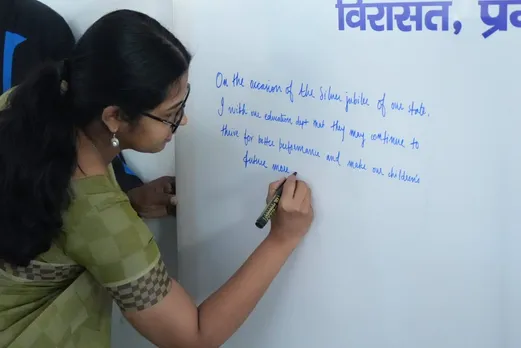 विरासत, प्र
On the occasion of the Silver jubilee of our state.
I wish our education dept that they may continue to
thrive for better performance and make our children's
future more